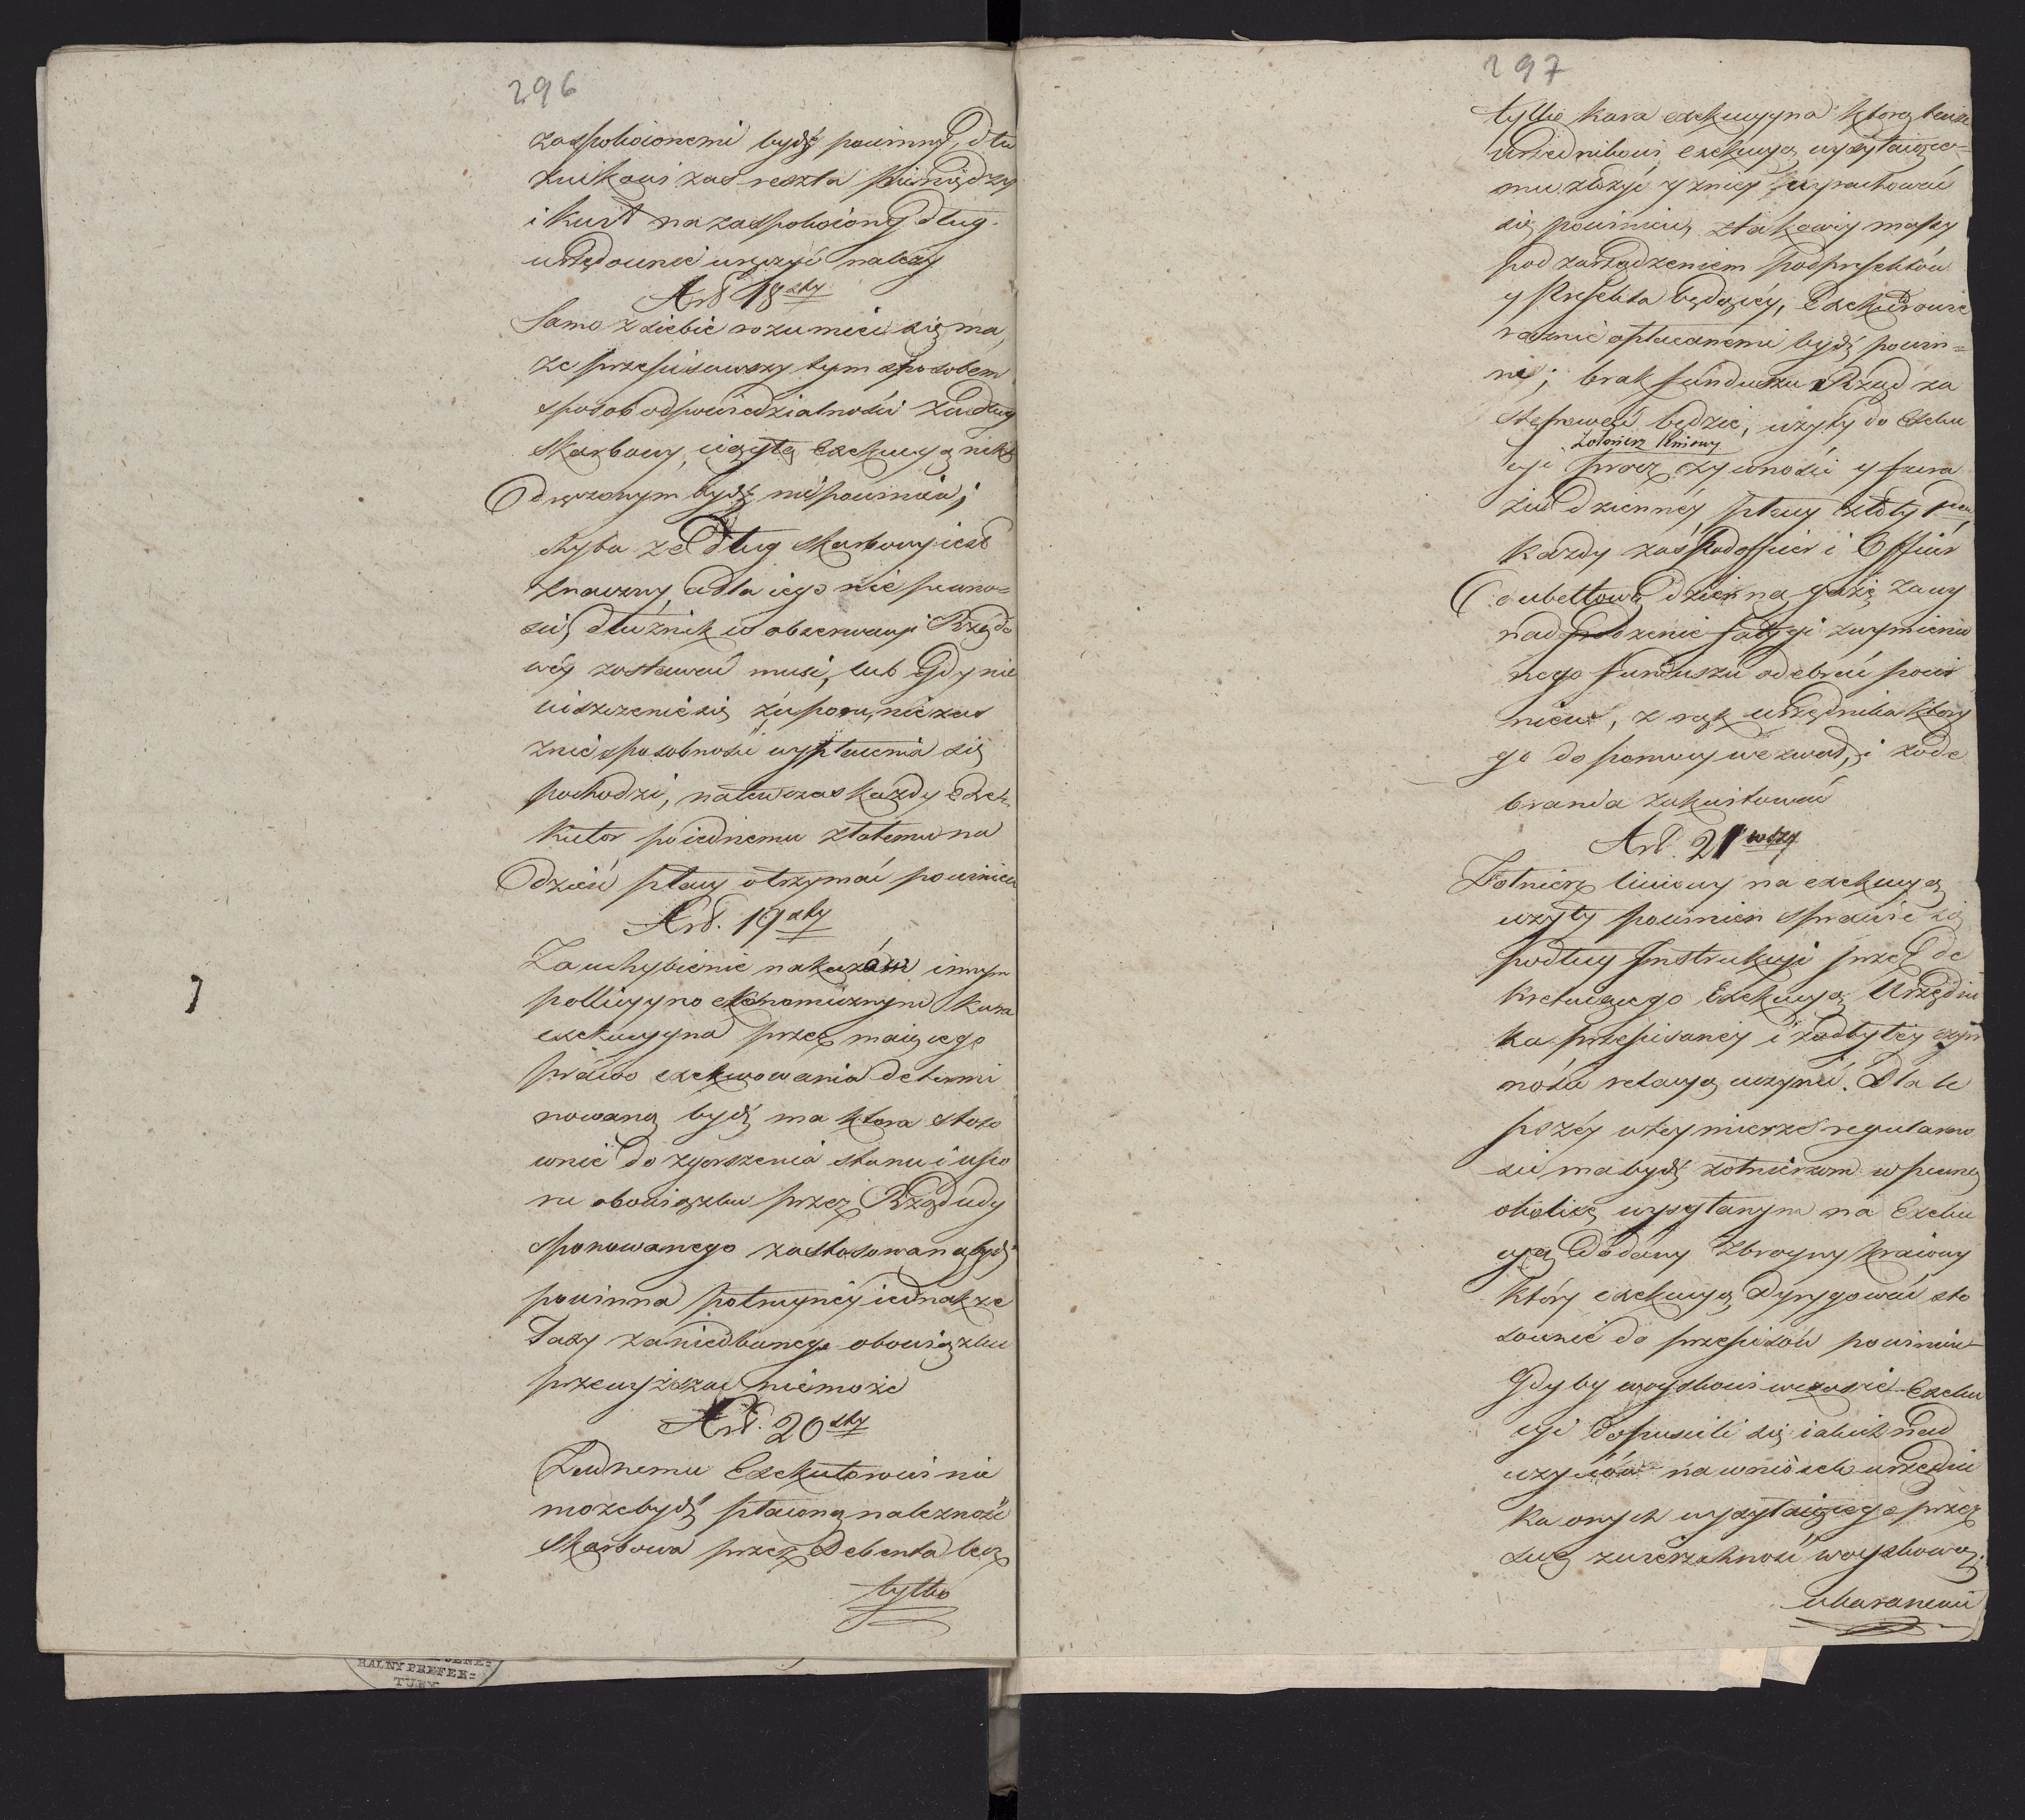 296
zaspokoionemi bydź powinny, dłu
żnikowi zaś reszta pieniędzy
i kwit na zaspokoiony dług
urzędownie uręczyć należy
Art 18sty
Samo z siebie rozumieć się ma,
że przepisawszy tym sposobem
sposob odpowiedzialności za dług
Skarbowy, ciągłą Exekucyą nikt
dręczonym bydź niepowinien;
chyba że dług Skarbowy iest
znaczny, a dla iego nie pewno=
ści, dłużnik w obserwacyi Rządo
wéy zostawać musi, lub gdy nie
uiszczenie się z uporu, nie zaś
z nie sposobności wypłacenia się
pochodzi, natenczas każdy Exe=
kutor po iednemu złotemu na
dzień płacy otrzymać powinien
Art. 19sty
Za uchybienie nakazów innym
pollicyyno ekonomicznym kara
exekucyyna przez maiącego
prawo exekwowania determi
nowaną bydź ma ktora stoso
wnie do zgorszenia stanu i upo
ru obowiązku przez Rząd udy
sponowanego zastosowaną bydź
powinna potrwyney iednakże
Taxy zaniedbanego obowiązku
przewyższać niemoże
Art. 20sty
Żadnemu Exekutorowi nie
możebydź płaconą należność
Skarbowa przez Debenta lecz
tylko
297
tylko kara exekucyyna ktorą tenże
Urzednikowi exekucyą wysyłaiące=
mu złożyć y zniey wyrachować
się powinien, ztakowey massy
pod zarządzeniem podprefektów
y Prefekta będącéy, Exekutorowie
rocznie opłacanemi bydź powin=
ni; brak funduszu Rząd za
stępować będzie, użyty do Exeku
Żołnierz liniowy
cyi procz żywności y fura
żu dziennéy płacy złoty 1 den
każdy zaś Podofficer i Officer
dubeltową dzienną gażę za wy
nadgrodzenie fatygi zwymienio
nego funduszu odebrać powi
nien, z rąk urzędnika ktory
go do pomocy wezwał, i zode
brania zakwitować
Art. 21wszy
Żołnierz liniowy na exekucyą
użyty powinien sprawić się
podług Instrukcyi przez de
kretuiącego Exekucyą Urzędni
ka przepisanéy i zodbytéy czyn
ności relacyą uczynić. Dla le
pszéy wtey mierze regularno
ści ma bydź żołnierzom w pewną
okolicę wysyłanym na Exeku
cyą dodany Zbroyny kraiowy
który exekucyą dyrygować sto
sownie do przepisów powinien
Gdyby woyskowi w czasie Exeku
cyi dopuscili się iakich nad
użyciów na wniosek urzędni
ka onych wysyłaiącego przez
swą zwierzchność woyskową
ukaranemi
RALNY PREFEK=
TURY